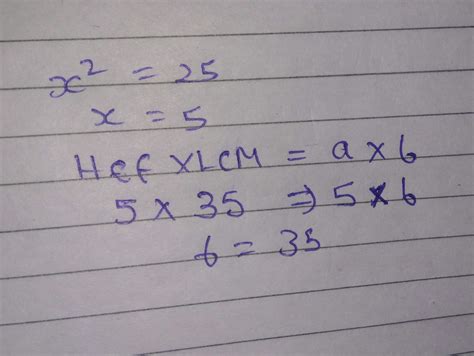 x² = 25
x = 5
HCF X LCM = a x b
5 x 35 ⇒ 5 x b
b = 35